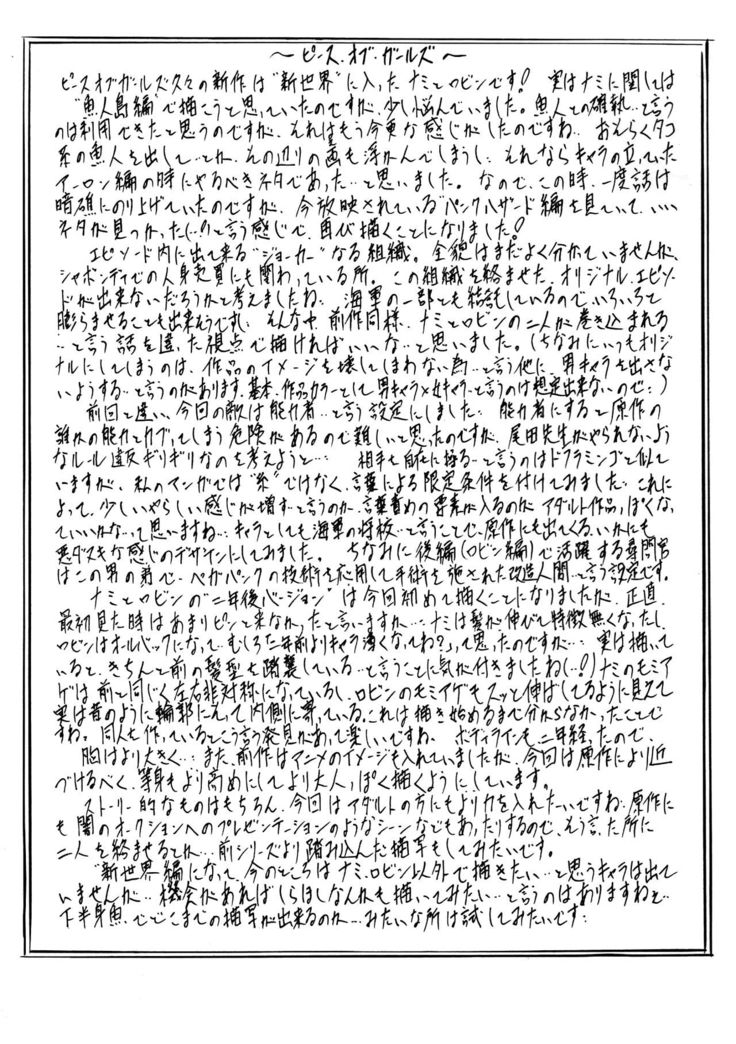 ～ピース・オブ・ガールズ～
ピースオブガールズ久々の新作は“新世界”に入ったナミとロビンです! 実はナミに関しては
“魚人島編”で描こうと思っていたのですが、少し悩んでいました。魚人との確執…と言う
のは利用できたと思うのですが、それはもう今更な感じがしたのですね… おそらくタコ
系の魚人を出して…とか、その辺りの画も浮かんでしまうし、それならキャラの立っていた
アーロン編の時にやるべきネタであった…と思いました。なので、この時、一度話は
暗礁にのり上げていたのですが、今放映されている“パンクハザード編”を見ていて、いい
ネタが見つかった(…!?)と言う感じで、再び描くことになりました!
エピソード内に出て来る“ジョーカー”なる組織。全貌はまだよく分かっていませんが、
シャボンディでの人身売買にも関わっている所。この組織を絡ませた、オリジナルエピソー
ドが出来ないだろうかと考えましたね… 海軍の一部とも結託しているので、いろいろと
膨らませることも出来そうですし、そんな中、前作同様、ナミとロビンの二人が巻き込まれる
…と言う話を違った視点で描ければいいな…と思いました。(ちなみにいつもオリジ
ナルにしてしまうのは、作品のイメージを壊してしまわない為…と言う他に、男キャラを出さな
いようする…と言うのがあります。基本、作品カラーとして男キャラ×女キャラ…と言うのは想定出来ないので…)
前回と違い、今回の敵は能力者…と言う設定にしました… 能力者にすると原作の
誰かの能力とカブってしまう危険があるので難しいと思ったのですが、尾田先生がやられないよう
なルール違反ギリギリなのを考えようと… 相手を自在に操る…と言うのはドフラミンゴと似て
いますが、私のマンガでは“糸”ではなく、言葉による限定条件を付けてみました… これに
よって、少しいやらしい感じが増す…と言うのか、言葉責めの要素が入るのが、アダルト作品っぽくなっ
ていいかな…って思いますね… キャラとしても海軍の将校…と言うことで、原作にも出てくる、いかにも
悪ダヌキな感じのデザインにしてみました。 ちなみに後編(ロビン編)で活躍する尋問官
はこの男の弟で、ベガパンクの技術を応用して手術を施された改造人間…と言う設定です。
ナミとロビンの“二年後バージョン”は今回初めて描くことになりましたが、正直、
最初見た時はあまりピンと来なかったと言いますか… ナミは髪が伸びて特徴無くなったし、
ロビンはオールバックになって…むしろ二年前よりキャラ薄くなってね?って思ったのですが… 実は描いて
いると、きちんと前の髪型を踏襲している…と言うことに気が付きましたね(…!)ナミのモミア
ゲは前と同じく左右非対称になっているし、ロビンのモミアゲもスッと伸ばしてるように見えて
実は昔のように輪郭にそって内側に寄っている。これは描き始めるまで分からなかったことで
すね。同人を作っているとこう言う発見があって楽しいですね… ボディラインも二年経ったので、
胸はより大きく…また、前作はアニメのイメージも入れていましたが、今回は原作により近
づけるべく、等身もより高めにしてより大人っぽく描くようにしています。
ストーリー的なものはもちろん、今回はアダルトの方にもより力を入れたいですね…原作に
も闇のオークションへのプレゼンテーションのようなシーンなどもあったりするので、そう言った所に
二人を絡ませるとか…前シリーズより踏み込んだ描写もしてみたいです。
“新世界編”になって、今のところはナミ・ロビン以外で描きたい…と思うキャラは出て
いませんが…機会があればしらほしなんかも描いてみたい…と言うのはありますねと…
下半身魚…でどこまでの描写が出来るのか…みたいな所は試してみたいです…